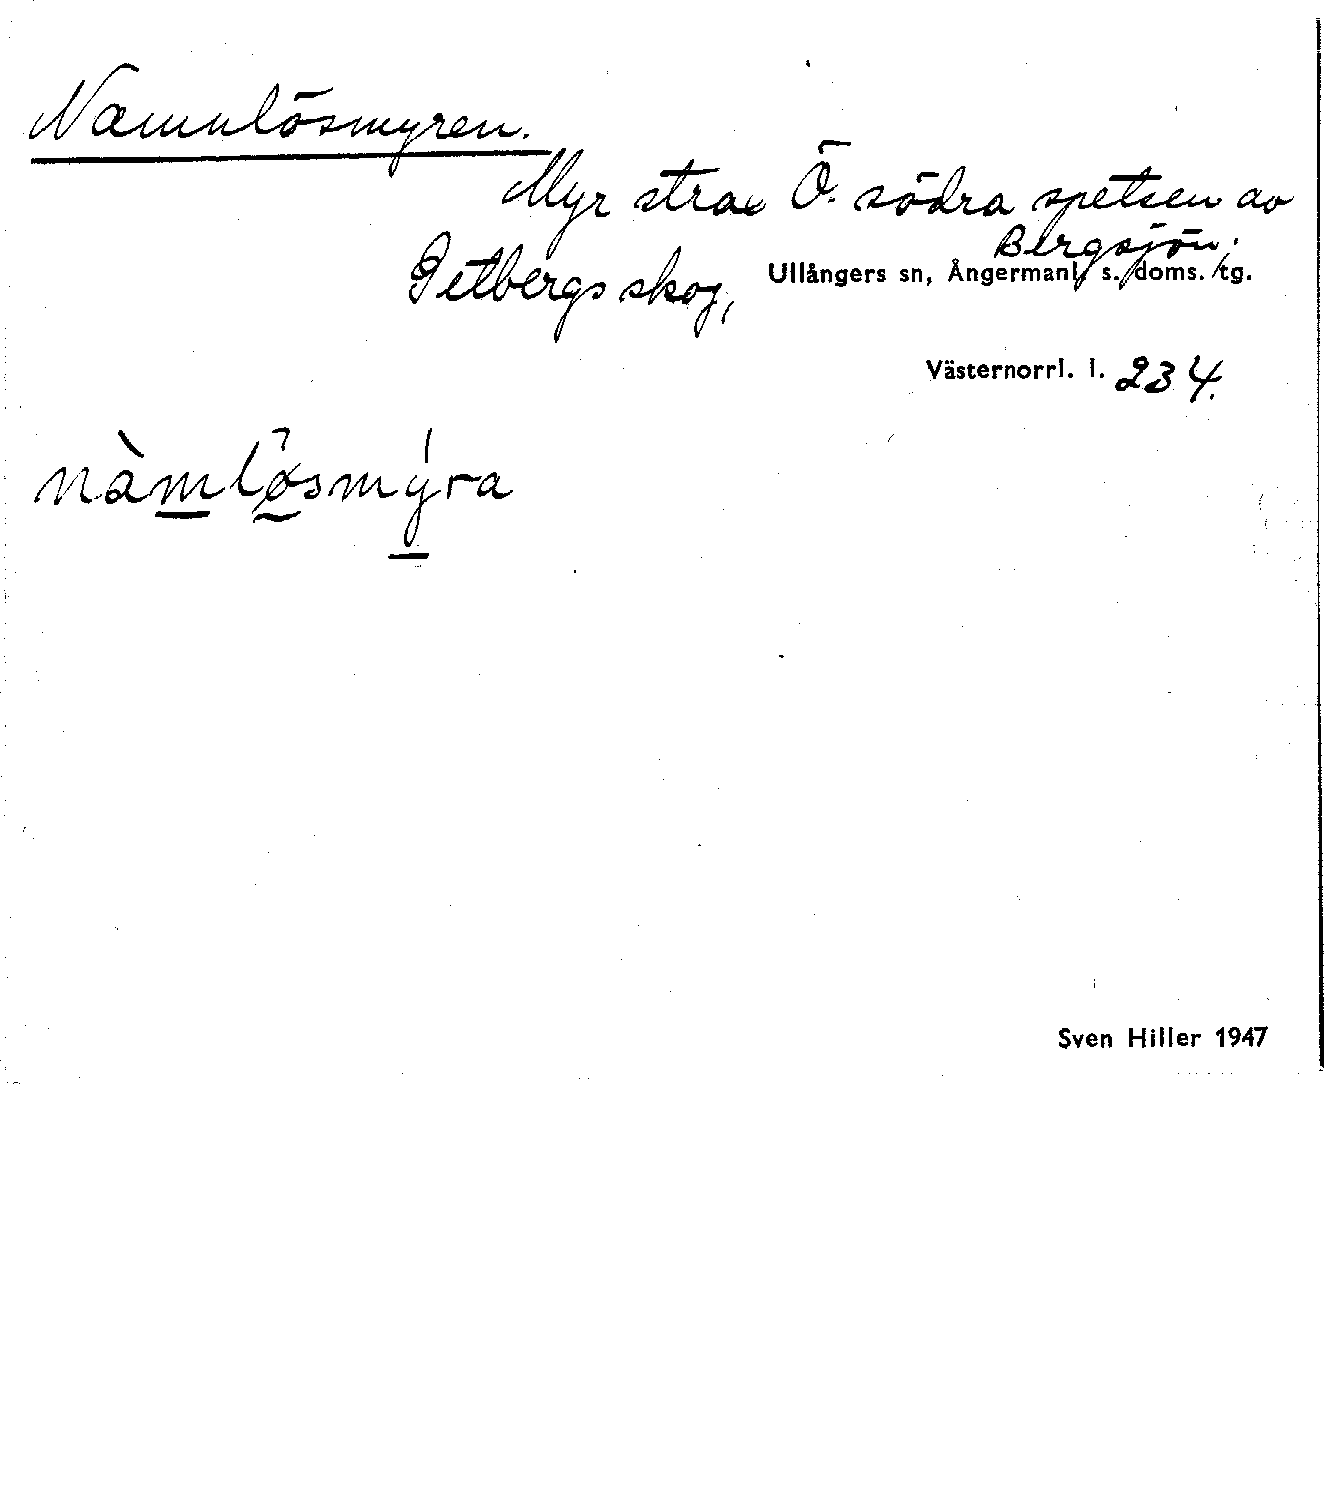 Namnlösmyren.
Myr strax Ö. södra spetsen av
Bergsjön;
Getbergs skog, Ullångers sn, Ångermanl. s. doms. tg.
Västernorrl. l. 234.
nàmlösmýra
Sven Hiller 1947